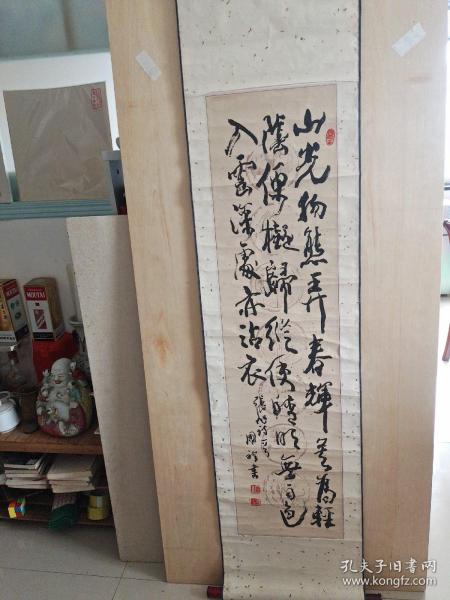 山光物態弄春輝莫為輕
陰便擬歸縱使晴明無雨色
入雲深處亦沾衣
張旭詩
國祥書
MOUTAI
MOUTAI
孔夫子旧书网
www.kongfz.com